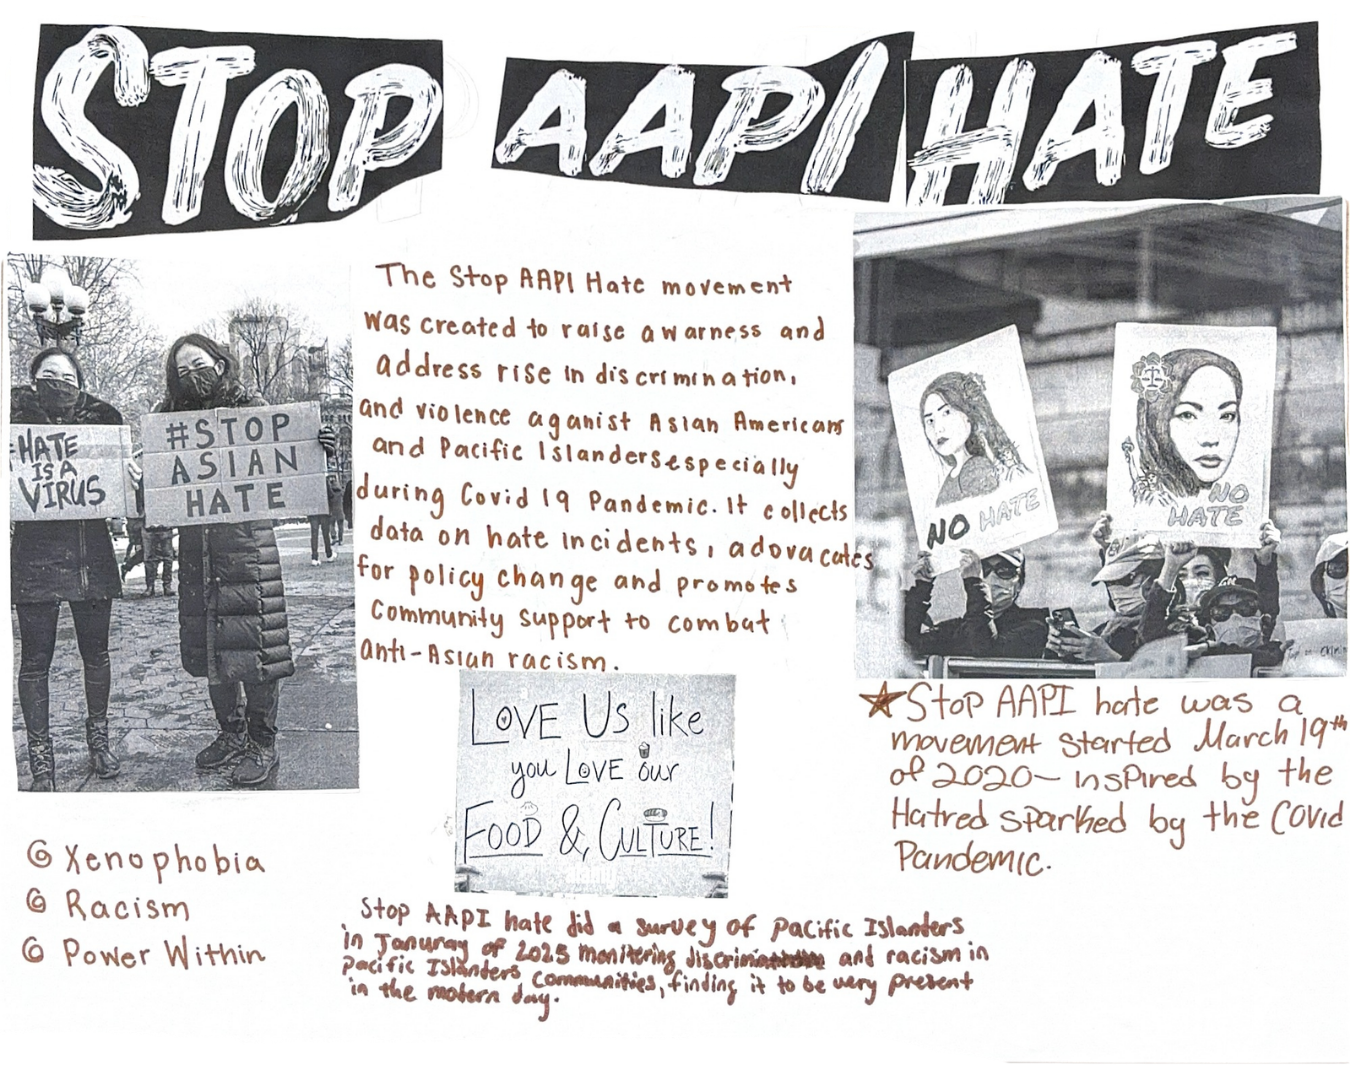 STOP AAPI HATE
The Stop AAPI Hate movement
was created to raise awarness and
address rise in discrimination,
and violence aganist Asian Americans
and Pacific Islanders especially
during Covid 19 Pandemic. It collects
data on hate incidents, adovacates
for policy change and promotes
Community support to combat
anti-Asian racism.
#HATE
IS A
VIRUS
#STOP
ASIAN
HATE
NO HATE
NO
HATE
LOVE US like
you LOVE our
FOOD & CULTURE!
★ Stop AAPI hate was a
movement started March 19th
of 2020- inspired by the
Hatred sparked by the Covid
Pandemic.
Xenophobia
Racism
Power Within
Stop AAPI hate did a survey of Pacific Islanders
in Januray of 2025 monitering discrimination and racism in
Pacific Islanders Communities, finding it to be very present
in the modern day.